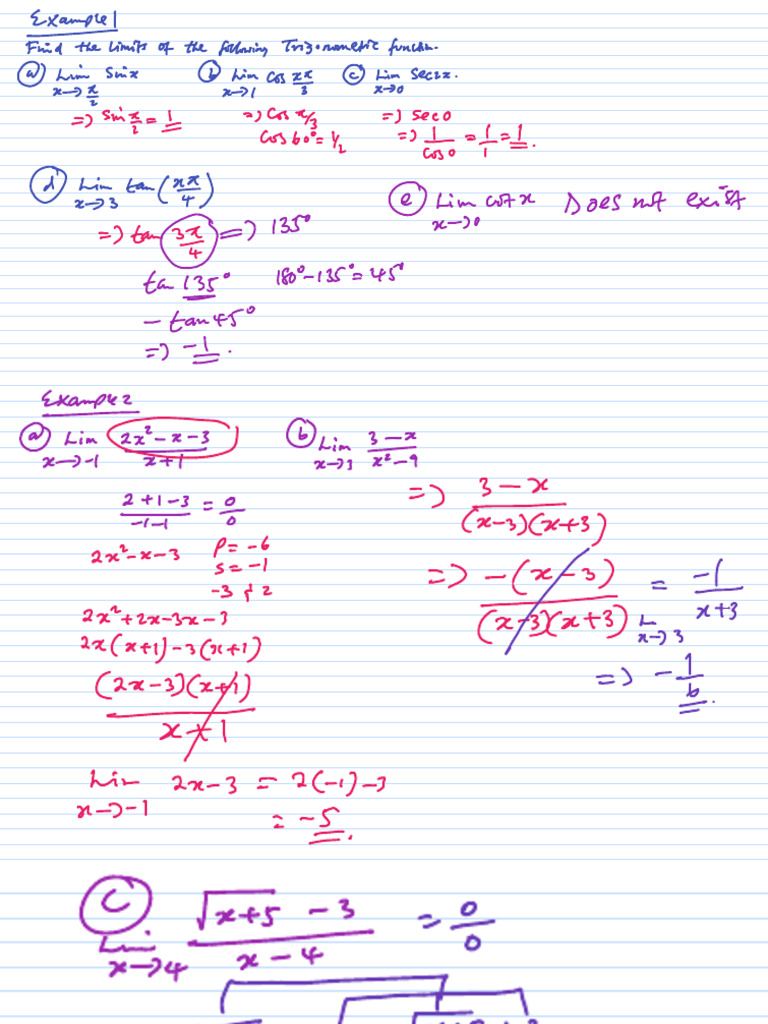 Example 1
Find the limits of the following Trigonometric function.
a) Lim x→π/2 Sinx b) Lim x→1 Cos xπ/3 c) Lim x→0 Sec2x.
=> Sin π/2 = 1 => Cos π/3 => Sec0
Cos60° = 1/2 => 1/Cos0 = 1/1 = 1.
d) Lim x→3 tan(xπ/4) e) Lim x→0 cotx Does not exist
=> tan 3π/4 => 135°
tan 135° 180°-135° = 45°
- tan45°
=> -1.
Example 2
a) Lim x→-1 (2x²-x-3)/(x+1) b) Lim x→3 (3-x)/(x²-9)
(2+1-3)/(-1-1) = 0/0 => (3-x)/((x-3)(x+3))
2x²-x-3 P = -6
S = -1
-3 & 2 => -(x-3)/((x-3)(x+3)) = Lim x→3 -1/(x+3)
2x²+2x-3x-3
2x(x+1)-3(x+1) => -1/6.
(2x-3)(x+1)/(x+1)
Lim x→-1 2x-3 = 2(-1)-3
= -5.
c) Lim x→4 (√(x+5) - 3)/(x-4) = 0/0